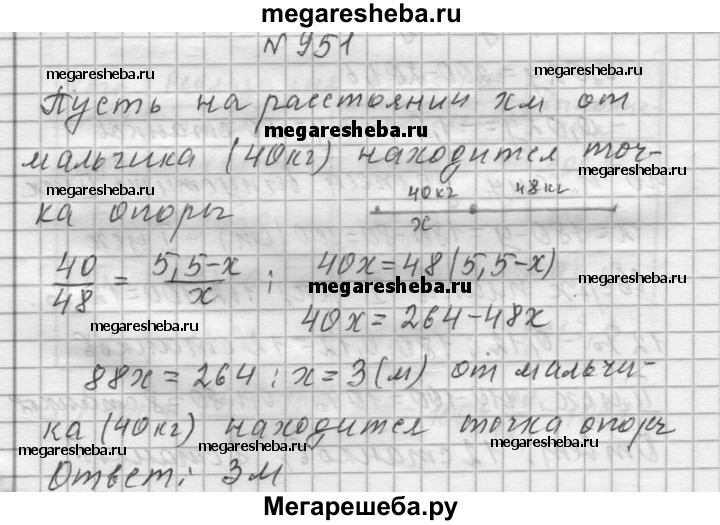 megaresheba.ru
N 951
megaresheba.ru megaresheba.ru
Пусть на расстоянии x м от
megaresheba.ru
мальчика (40кг) находится точ-
megaresheba.ru
ка опоры 40кг 48кг
x
40/48 = (5,5-x)/x ; 40x=48(5,5-x)
megaresheba.ru
40x=264-48x
megaresheba.ru
88x=264; x=3(м) от мальчи-
megaresheba.ru
ка (40кг) находится точка опоры
megaresheba.ru megaresheba.ru
Ответ: 3м
megaresheba.ru
Мегарешеба.ру